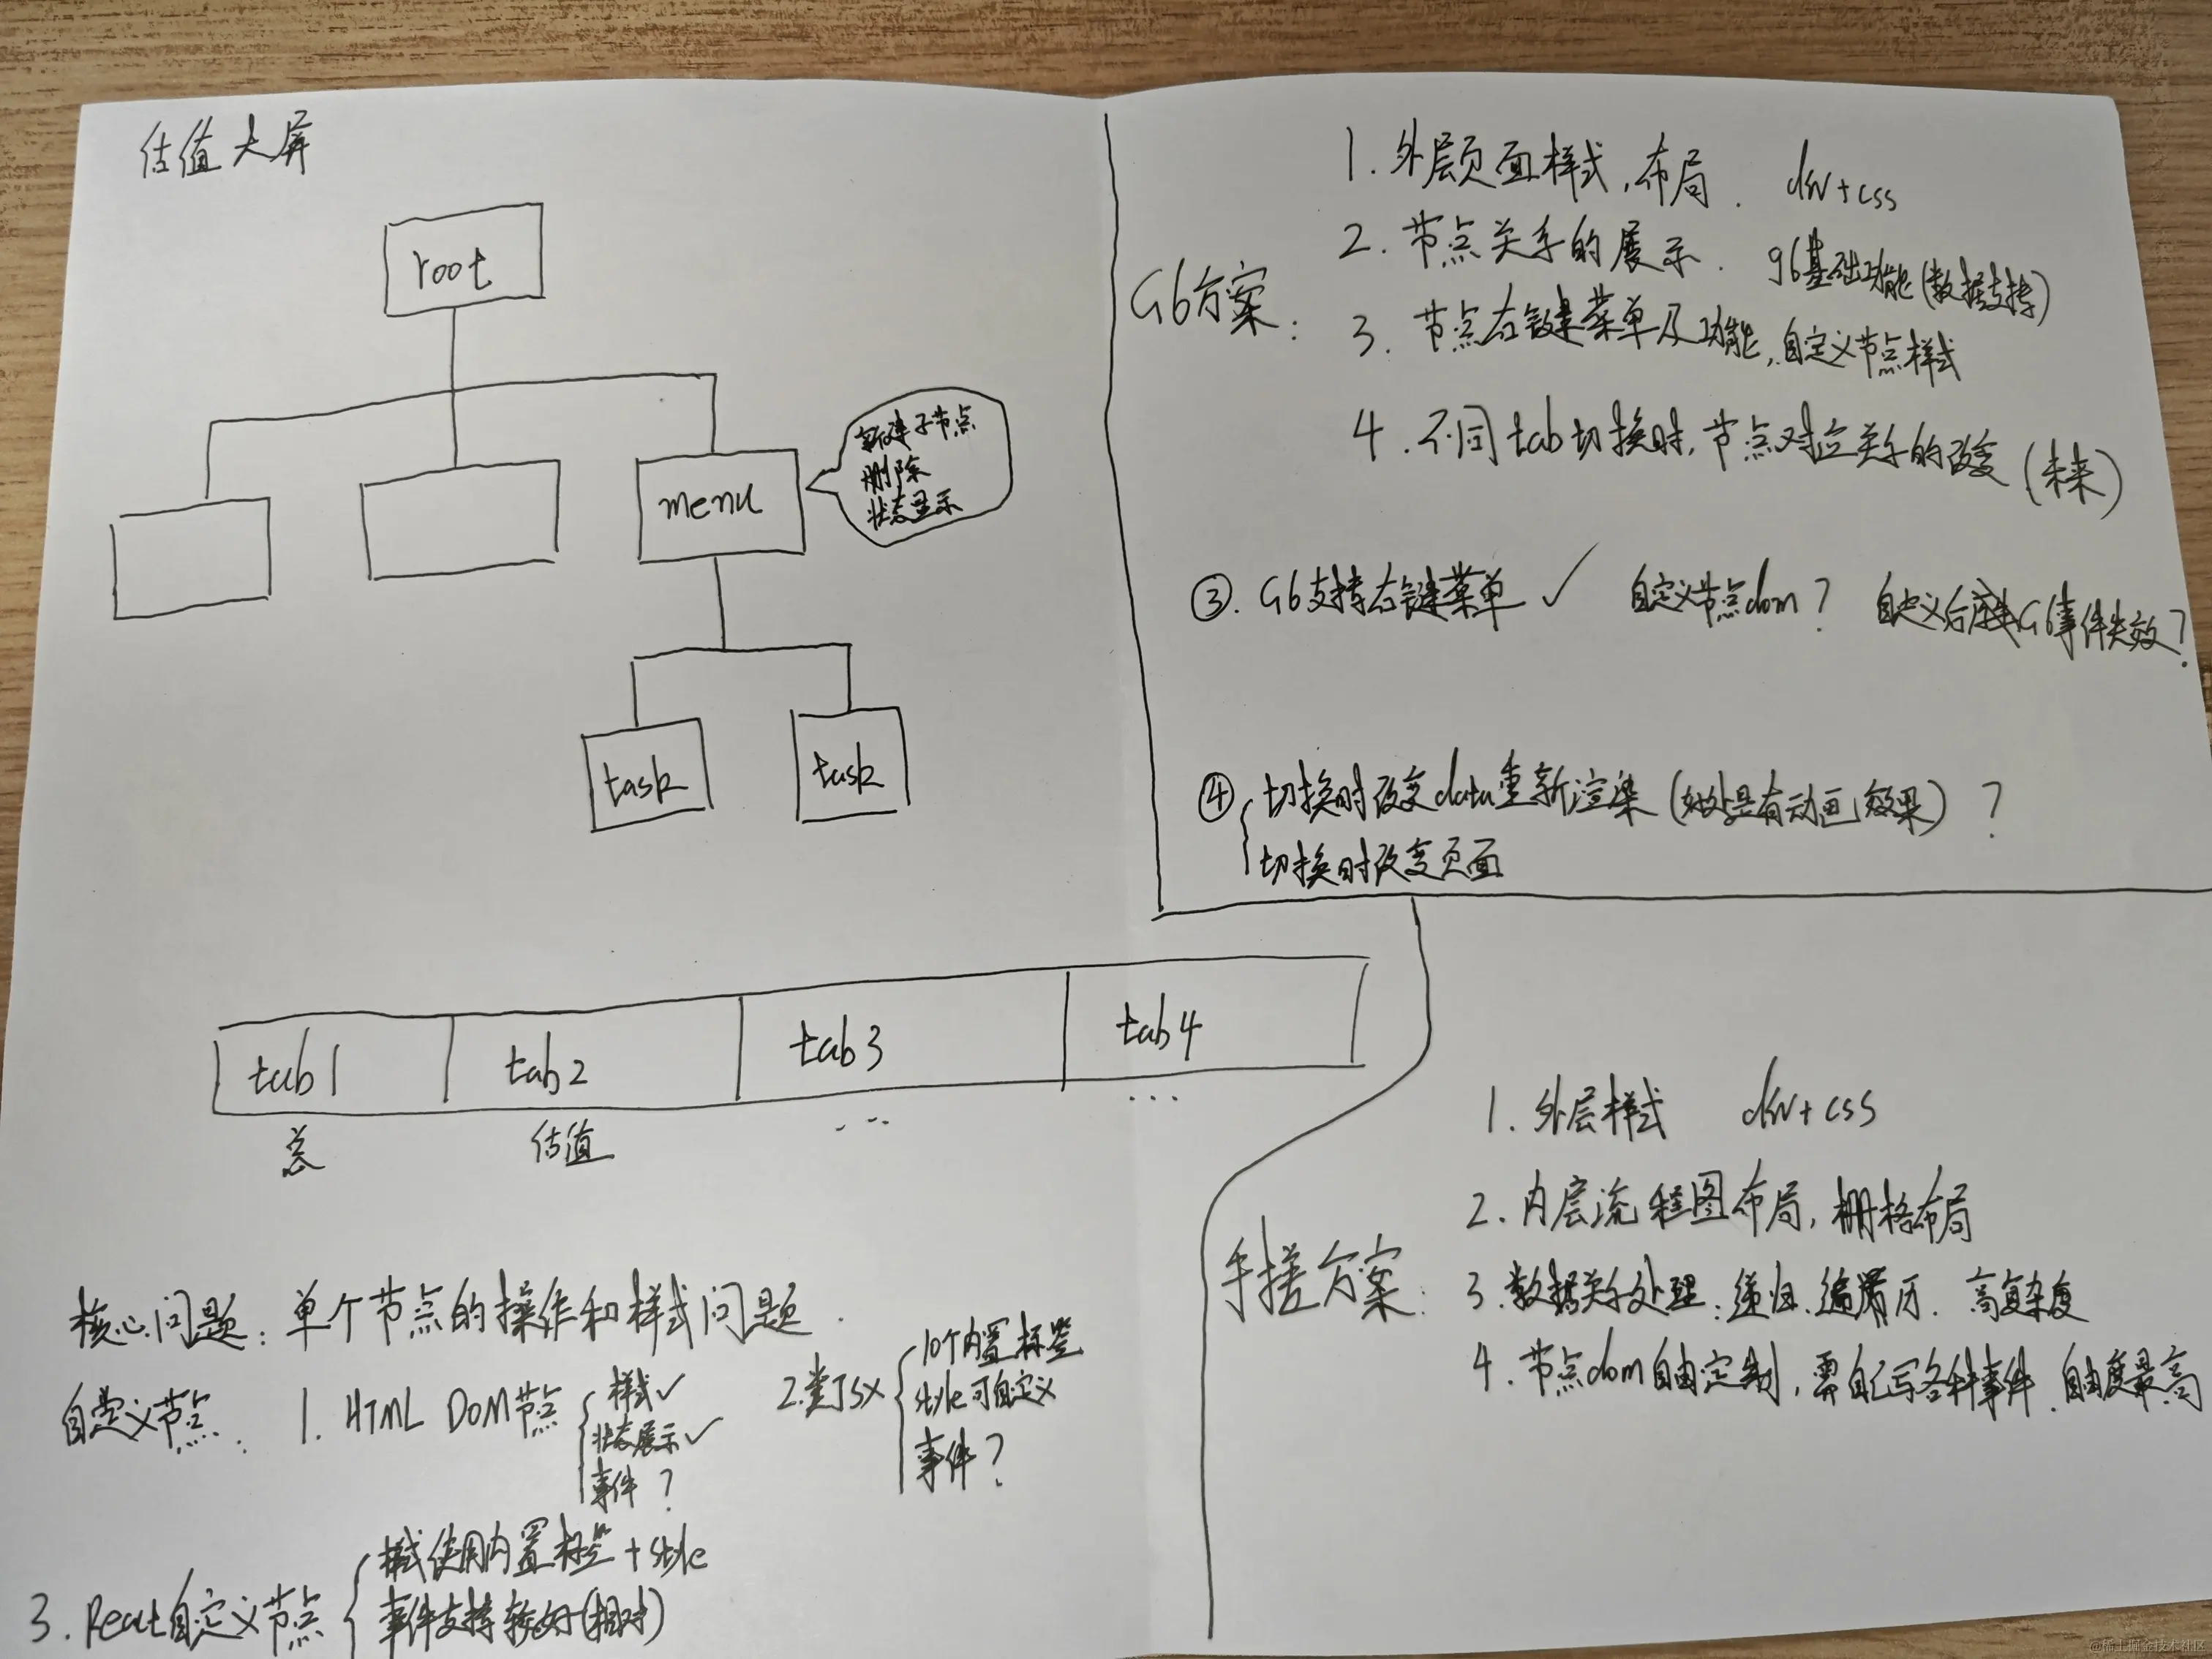 估值大屏
root
menu
新建子节点
删除
状态显示
task
task
tab1
tab2
tab3
tab4
总
估值
...
...
核心问题：单个节点的操作和样式问题.
自定义节点：
1. HTML DOM节点
样式✓
状态展示✓
事件？
2.类JSX
10个内置标签
style可自定义
事件？
3. React自定义节点
样式使用内置标签+style
事件支持较好(相对)
G6方案：
1. 外层页面样式,布局. div+css
2. 节点关系的展示. g6基础功能(数据支撑)
3. 节点右键菜单及功能,自定义节点样式
4. 不同tab切换时,节点对应关系的改变(未来)
③. G6支持右键菜单 ✓ 自定义节点dom？ 自定义后G6事件失效？
④ 切换时改变data重新渲染(好处是有动画效果)？
切换时改变页面
手搓方案：
1. 外层样式 div+css
2. 内层流程图布局,栅格布局
3. 数据关系处理：递归.遍历. 高复杂度
4. 节点dom自由定制,需自己写各种事件.自由度最高
@稀土掘金技术社区